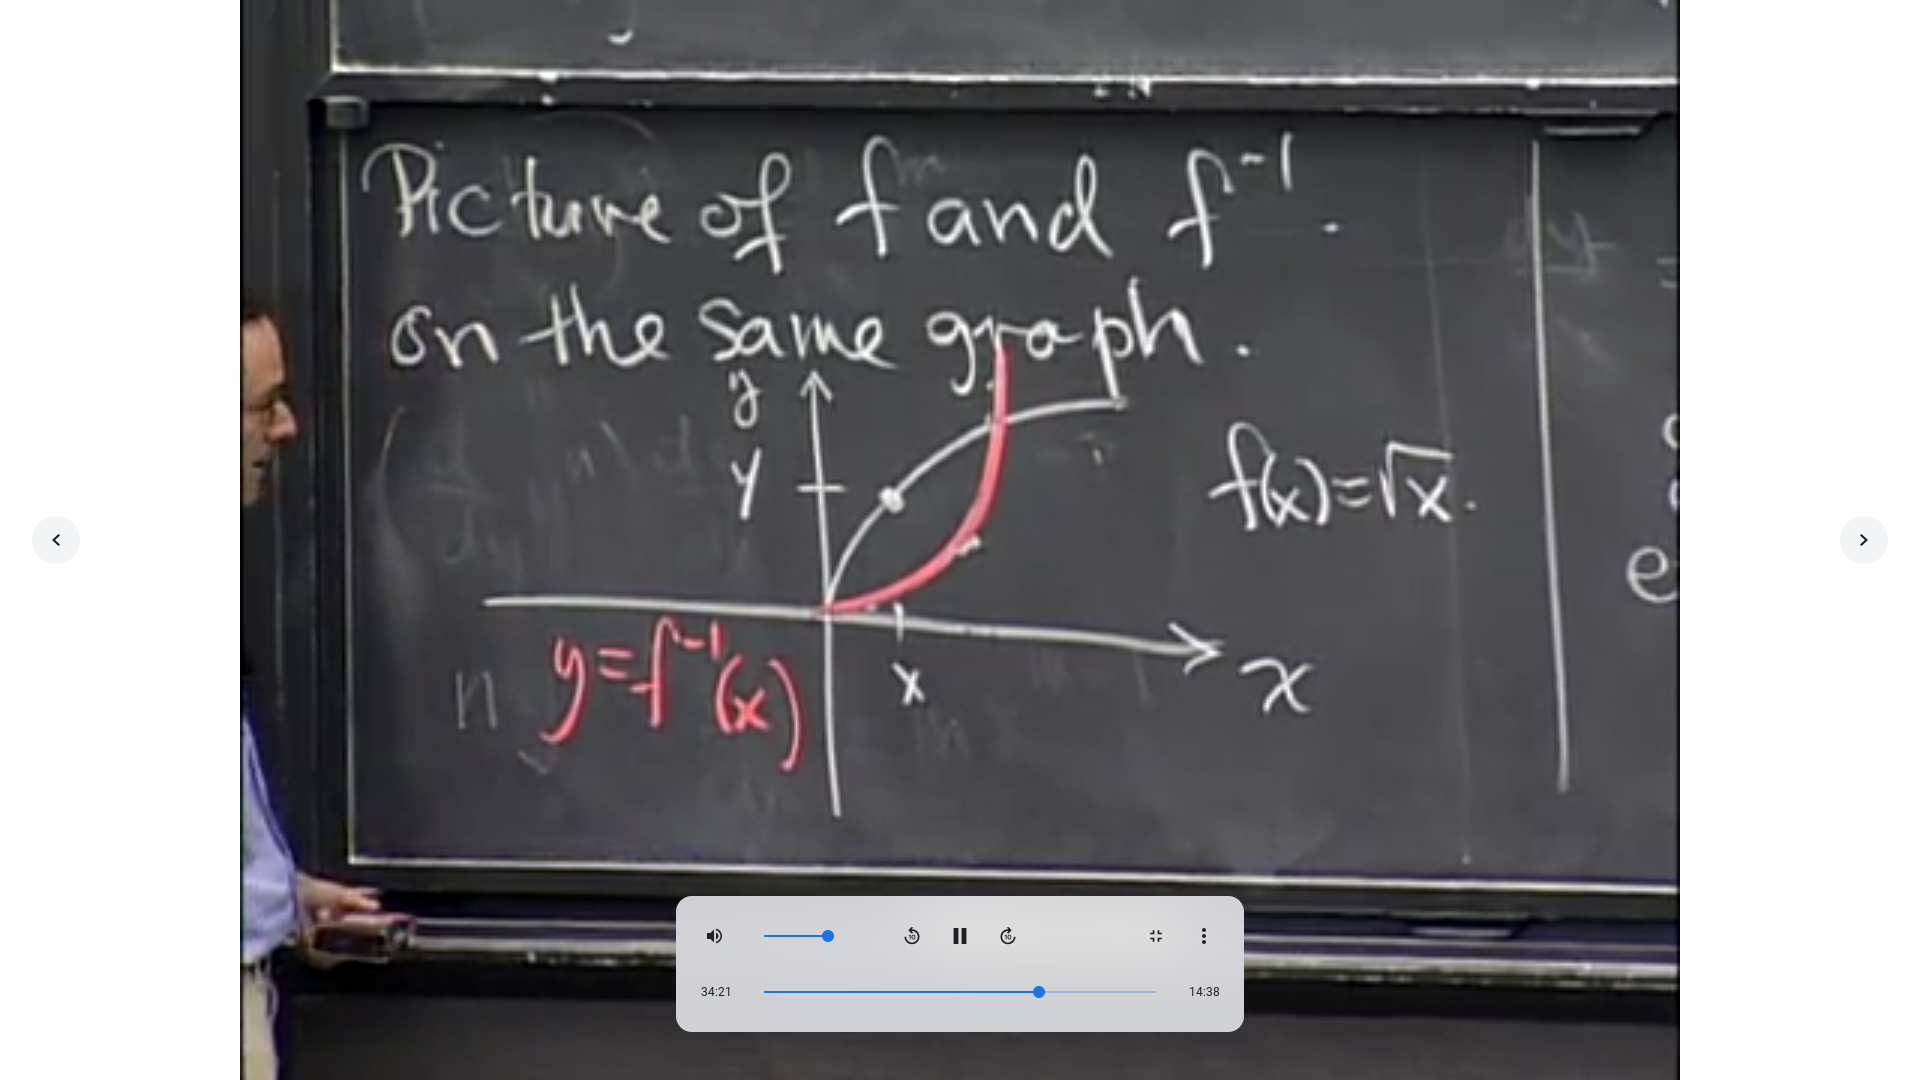 Picture of f and f⁻¹.
on the same graph.
y
y
f(x)=√x.
y=f⁻¹(x)
x
x
34:21
14:38